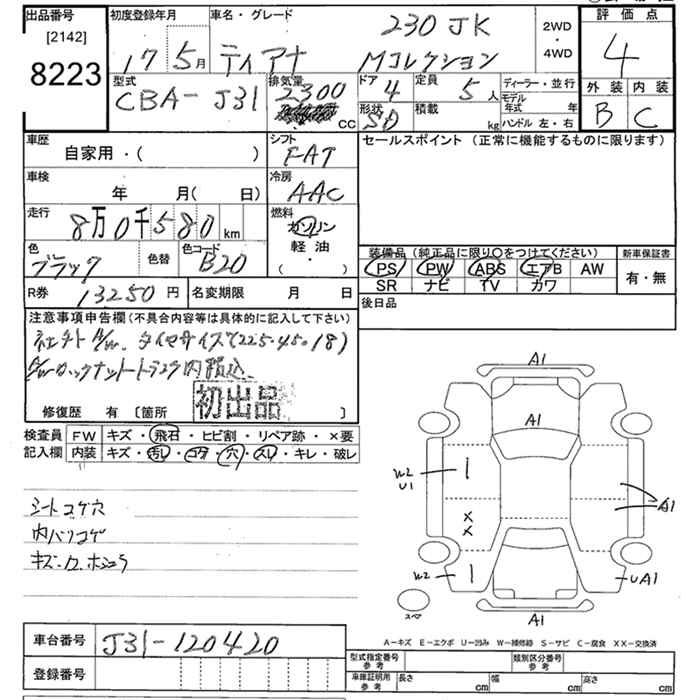 出品番号
[2142]
8223
初度登録年月
17 5月
車名・グレード
ティアナ
230JK
Mコレクション
2WD
・
4WD
評価点
4
外装 内装
B C
型式
CBA-J31
排気量
2300
cc
ドア
4
定員
5人
ディーラー・並行
モデル年式 年
ハンドル 左・右
形状
SD
積載
kg
車歴
自家用・( )
シフト
FAT
セールスポイント (正常に機能するものに限ります)
車検
年 月( 日)
冷房
AAC
走行
8万0千580km
燃料
ガソリン
軽油
( ・ )
色
ブラック
色替
色コード
B20
装備品(純正品に限り○をつけてください)
PS PW ABS エアB AW
SR ナビ TV カワ
新車保証書
有・無
R券 13250円
名変期限 月 日
後日品
注意事項申告欄(不具合内容等は具体的に記入して下さい)
A/W. タイヤサイズ(225-45-18)
A/Wロックナットトランク内積込.
初出品
修復歴 有〔箇所 〕
検査員
記入欄
FW キズ・飛石・ヒビ割・リペア跡・×要
内装 キズ・汚レ・コゲ・穴・スレ・キレ・破レ
シートコゲ穴
内バリコゲ
A1
A1
W2
U1
X
X
A1
W2
UA1
A1
スペア
A-キズ E-エクボ U-凹み W-補修跡 S-サビ C-腐食 XX-交換済
車台番号 J31-120420
登録番号
型式指定番号
参考
類別区分番号
参考
車庫証明用
参考
長さ cm
幅 cm
高さ cm